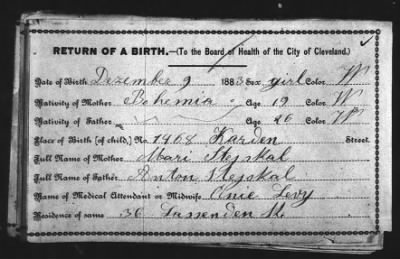 RETURN OF A BIRTH.—(To the Board of Health of the City of Cleveland.)
Date of Birth Dezember 9 1883 Sex girl Color W
Nativity of Mother Bohemia Age 19 Color W
Nativity of Father " Age 26 Color W
Place of Birth (of child,) No. 1468 Harden Street.
Full Name of Mother Mari Stejskal
Full Name of Father Anton Stejskal
Name of Medical Attendant or Midwife Anie Levy
Residence of same 36 St.